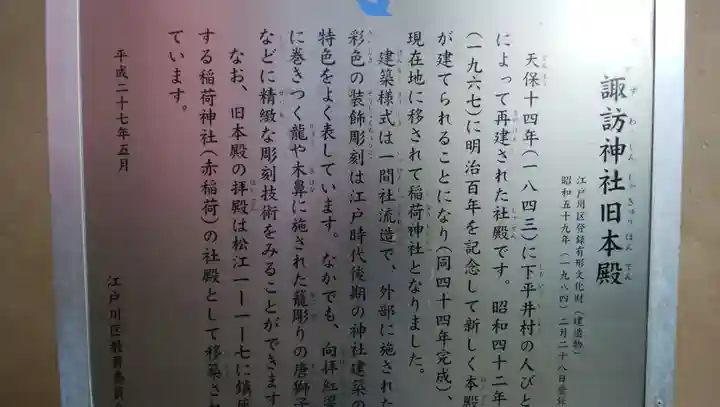 諏訪神社旧本殿
すわじんじゃきゅうほんでん
江戸川区登録有形文化財(建造物)
昭和五十九年(一九八四)二月二十八日登録
天保十四年(一八四三)に下平井村の人びと
によって再建された社殿です。昭和四十二年
(一九六七)に明治百年を記念して新しく本殿
が建てられることになり(同四十四年完成)、
現在地に移されて稲荷神社となりました。
建築様式は一間社流造で、外部に施された
彩色の装飾彫刻は江戸時代後期の神社建築の
特色をよく表しています。なかでも、向拝虹梁
に巻きつく龍や木鼻に施された籠彫りの唐獅子
などに精緻な彫刻技術をみることができます
なお、旧本殿の拝殿は松江一ー一ー七に鎮座
する稲荷神社(赤稲荷)の社殿として移築され
ています。
平成二十七年五月
江戸川区教育委員